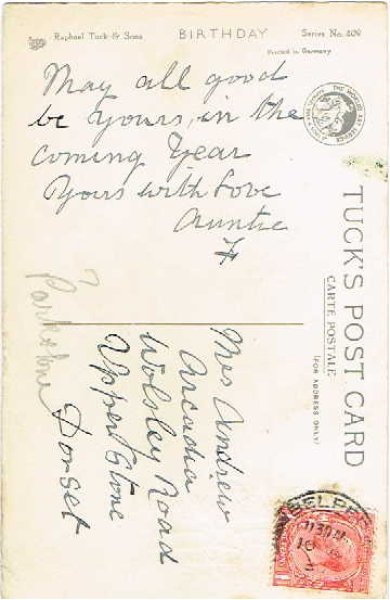 Raphael Tuck & Sons BIRTHDAY Series No. 409
Printed in Germany
May all good
be yours, in the
coming Year
Yours with Love
Auntie
TUCK'S POST CARD
CARTE POSTALE
(FOR ADDRESS ONLY)
Mrs Andrew
Arcadia
Wolsley Road
Upper Stone
Parkstone
Dorset